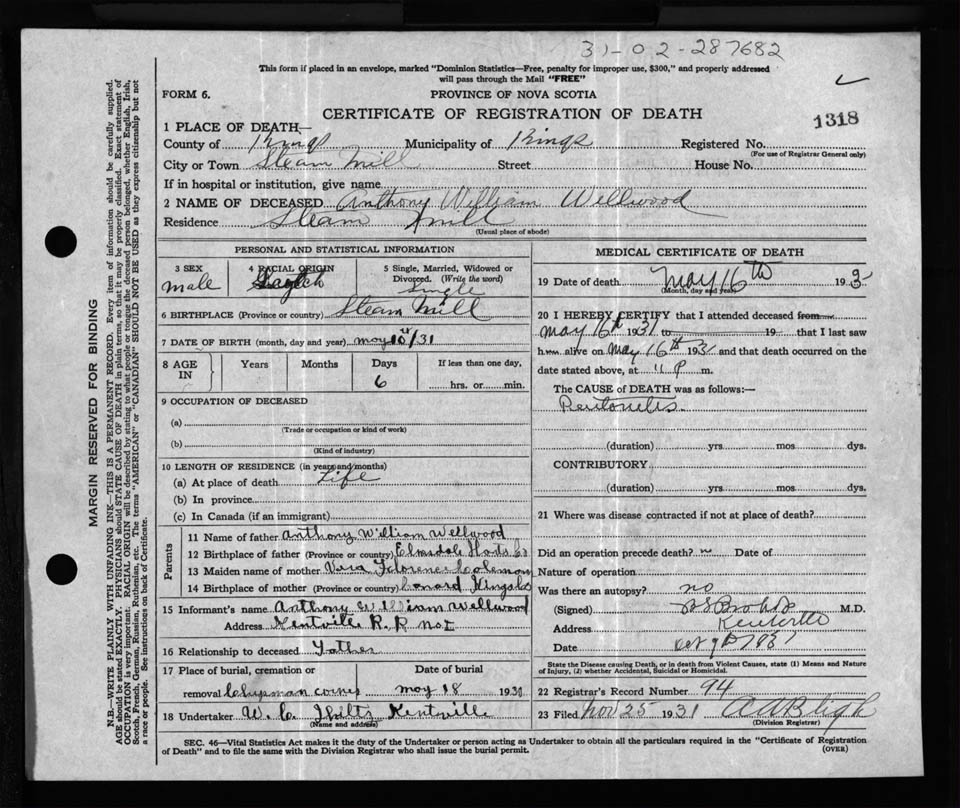 31-02-287682
This form if placed in an envelope, marked "Dominion Statistics—Free, penalty for improper use, $300," and properly addressed
will pass through the Mail "FREE"
FORM 6.
PROVINCE OF NOVA SCOTIA
CERTIFICATE OF REGISTRATION OF DEATH
1318
1 PLACE OF DEATH—
County of Kings Municipality of Kings Registered No.
(For use of Registrar General only)
City or Town Steam Mill Street House No.
If in hospital or institution, give name
2 NAME OF DECEASED Anthony William Wellwood
Residence Steam Mill
(Usual place of abode)
PERSONAL AND STATISTICAL INFORMATION
3 SEX 4 RACIAL ORIGIN 5 Single, Married, Widowed or
Divorced. (Write the word)
male Single
6 BIRTHPLACE (Province or country) Steam Mill
7 DATE OF BIRTH (month, day and year) may 10/31
8 AGE IN Years Months Days If less than one day,
6 hrs. or min.
9 OCCUPATION OF DECEASED
(a)
(Trade or occupation or kind of work)
(b)
(Kind of industry)
10 LENGTH OF RESIDENCE (in years and months)
(a) At place of death Life
(b) In province
(c) In Canada (if an immigrant)
Parents
11 Name of father Anthony William Wellwood
12 Birthplace of father (Province or country) Elmsdale Hants Co
13 Maiden name of mother Vera Florence Coleman
14 Birthplace of mother (Province or country) Canard Kings Co
15 Informant's name Anthony William Wellwood
Address Kentville R.R no 1
16 Relationship to deceased Father
17 Place of burial, cremation or Date of burial
removal Chipman corner may 18 1931
18 Undertaker W. C. Kentville
(Name and address)
MEDICAL CERTIFICATE OF DEATH
19 Date of death May 16th 193
(Month, day and year)
20 I HEREBY CERTIFY that I attended deceased from
May 16th 1931 to 19 that I last saw
h alive on May 16th 1931 and that death occurred on the
date stated above, at 11 P m.
The CAUSE OF DEATH was as follows:—
Peritonitis
(duration) yrs. mos. dys.
CONTRIBUTORY
(duration) yrs. mos. dys.
21 Where was disease contracted if not at place of death?
Did an operation precede death? n Date of
Nature of operation
Was there an autopsy? no
(Signed) M.D.
Address Kentville
Date Oct 9th 1931
State the Disease causing Death, or in death from Violent Causes, state (1) Means and Nature
of Injury, (2) whether Accidental, Suicidal or Homicidal.
22 Registrar's Record Number 94
23 Filed Nov 25 1931 A A Bligh
(Division Registrar)
SEC. 46—Vital Statistics Act makes it the duty of the Undertaker or person acting as Undertaker to obtain all the particulars required in the "Certificate of Registration
of Death" and to file the same with the Division Registrar who shall issue the burial permit.
(OVER)
MARGIN RESERVED FOR BINDING
N.B.—WRITE PLAINLY WITH UNFADING INK—THIS IS A PERMANENT RECORD. Every item of information should be carefully supplied.
AGE should be stated EXACTLY. PHYSICIANS should STATE CAUSE OF DEATH in plain terms, so that it may be properly classified. Exact statement of
OCCUPATION is very important. RACIAL ORIGIN will be described by stating to what people or tongue the deceased person belonged, whether English, Irish,
Scotch, French, German, Russian, Ruthenian, etc. The terms "AMERICAN" or "CANADIAN" SHOULD NOT BE USED as they express citizenship but not
a race or people. See instructions on back of Certificate.